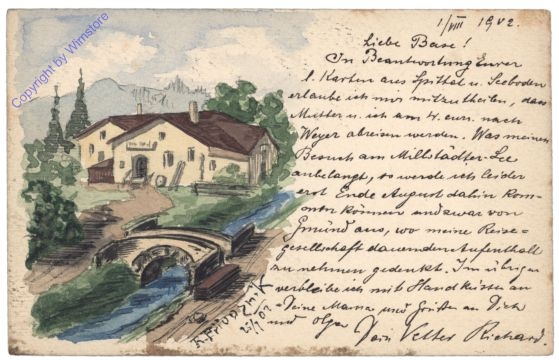 1/VIII 1902.
Liebe Base!
In Beantwortung Eurer
l. Karten aus Spittal u. Seeboden
erlaube ich mir mitzutheilen, dass
Mutter u. ich am 4. curr. nach
Weyer abreisen werden. Was meinen
Besuch am Millstädter-See
anbelangt, so werde ich leider
erst Ende August dahin kom-
men können und zwar von
Gmünd aus, wo meine Reise-
gesellschaft dauernden Aufenthalt
zu nehmen gedenkt. Im übrigen
verbleibe ich mit Handküssen an
Deine Mama und Grüßen an Dich
und Olga Dein Vetter Richard.
Copyright by Wimstore